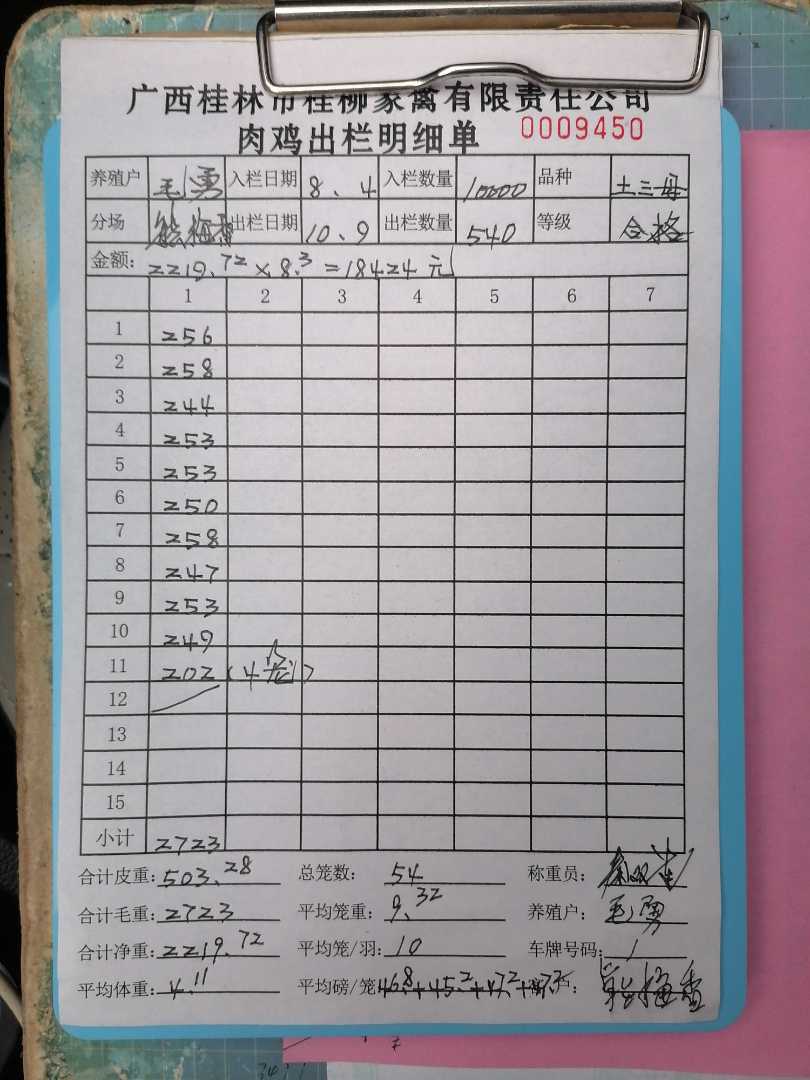 广西桂林市桂柳家禽有限责任公司
肉鸡出栏明细单 0009450
养殖户 毛勇 入栏日期 8.4 入栏数量 10000 品种 土三母
分场 出栏日期 10.9 出栏数量 540 等级 合格
金额: 2219.72×8.3=18424元
1 2 3 4 5 6 7
1 256
2 258
3 244
4 253
5 253
6 250
7 258
8 247
9 253
10 249
11 202(4笼)
12
13
14
15
小计 2723
合计皮重: 503.28 总笼数: 54 称重员:
合计毛重: 2723 平均笼重: 9.32 养殖户: 毛勇
合计净重: 2219.72 平均笼/羽: 10 车牌号码: 1
平均体重: 4.11 平均磅/笼 46.8+45.2+47.2+47.3